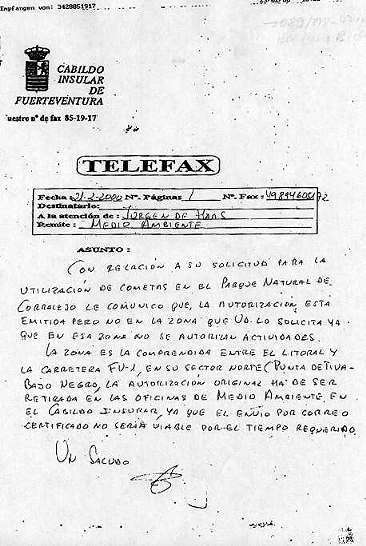 Empfangen von: 3428851917
CABILDO
INSULAR
DE
FUERTEVENTURA
uestro nº de fax 85-19-17
TELEFAX
Fecha : 21-2-2000 Nº. Páginas 1 Nº. Fax :
Destinatario:
A la atención de : JÜRGEN DE HAAS
Remite : MEDIO AMBIENTE
ASUNTO :
CON RELACIÓN A SU SOLICITUD PARA LA
UTILIZACIÓN DE COMETAS EN EL PARQUE NATURAL DE
CORRALEJO LE COMUNICO QUE, LA AUTORIZACIÓN, ESTÁ
EMITIDA PERO NO EN LA ZONA QUE UD. LO SOLICITA YA
QUE EN ESA ZONA NO SE AUTORIZAN ACTIVIDADES.
LA ZONA ES LA COMPRENDIDA ENTRE EL LITORAL Y
LA CARRETERA FV-1, EN SU SECTOR NORTE (PUNTA DE TIVA-
BAJO NEGRO, LA AUTORIZACIÓN ORIGINAL HA DE SER
RETIRADA EN LAS OFICINAS DE MEDIO AMBIENTE EN
EL CABILDO INSULAR, YA QUE EL ENVIO POR CORREO
CERTIFICADO NO SERÍA VIABLE POR EL TIEMPO REQUERIDO.
UN SALUDO